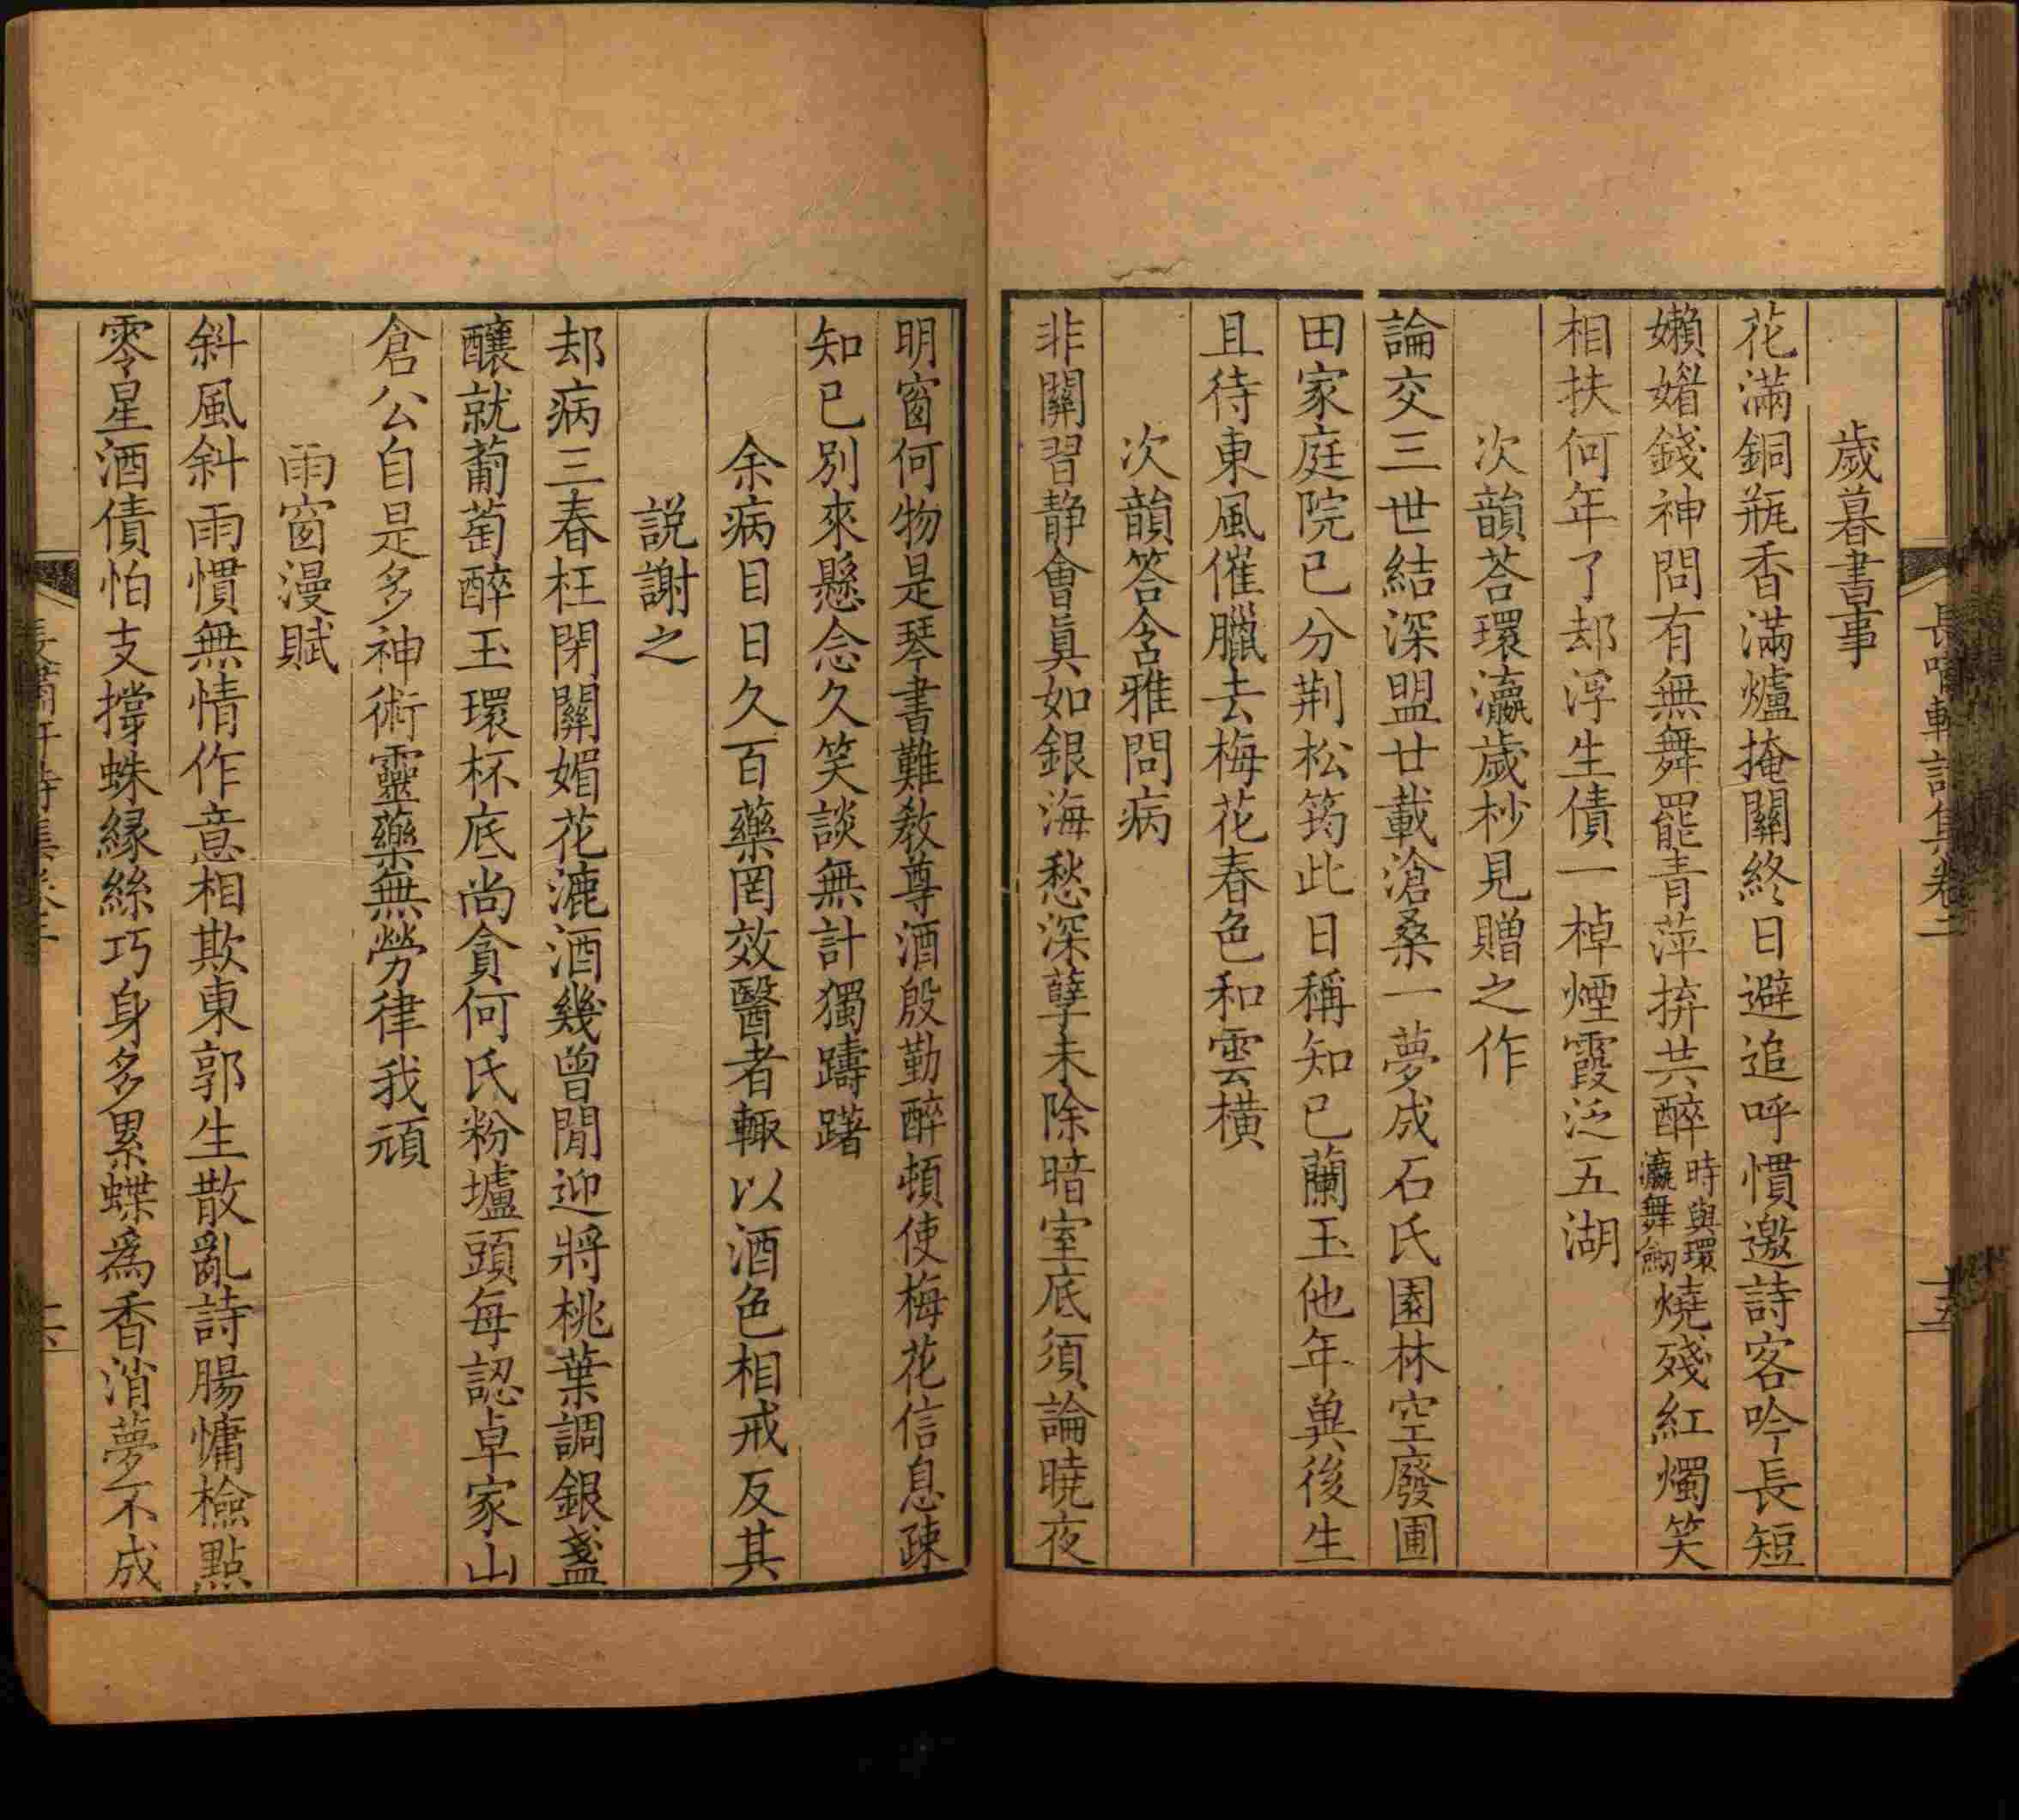 長嘯軒詩集卷二
十五
歲暮書事
花滿銅瓶香滿爐掩關終日避追呼慣邀詩客吟長短
嬾媚錢神問有無舞罷青萍拚共醉時與環瀛舞劒燒殘紅燭笑
相扶何年了却浮生債一棹煙霞泛五湖
次韻荅環瀛歲杪見贈之作
論交三世結深盟廿載滄桑一夢成石氏園林空廢圃
田家庭院已分荆松筠此日稱知己蘭玉他年異後生
且待東風催臘去梅花春色和雲橫
次韻答含雅問病
非關習静會眞如銀海愁深孽未除暗室底須論曉夜
明窗何物是琴書難教尊酒殷勤醉頓使梅花信息疎
知已別來懸念久笑談無計獨躊躇
余病目日久百藥罔效醫者輙以酒色相戒反其
説謝之
却病三春枉閉關媚花漉酒幾曾閒迎將桃葉調銀盞
釀就葡萄醉玉環杯底尚貪何氏粉壚頭每認卓家山
倉公自是多神術靈藥無勞律我頑
雨窗漫賦
斜風斜雨慣無情作意相欺東郭生散亂詩腸慵檢點
零星酒債怕支撐蛛緣絲巧身多累蝶爲香消夢不成